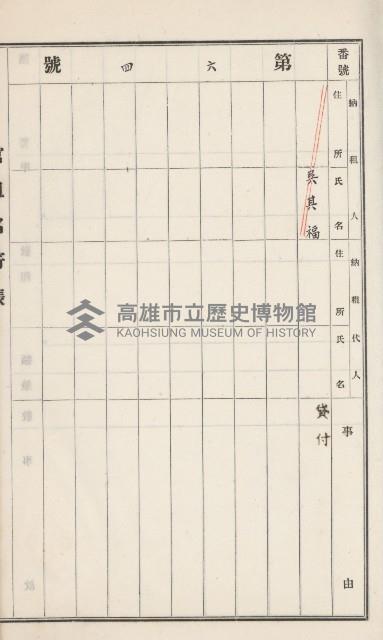 番號
第六四號
納租人
住所
氏名
納租代人
住所
氏名
事由
吳其福
貸付
高雄市立歷史博物館
KAOHSIUNG MUSEUM OF HISTORY